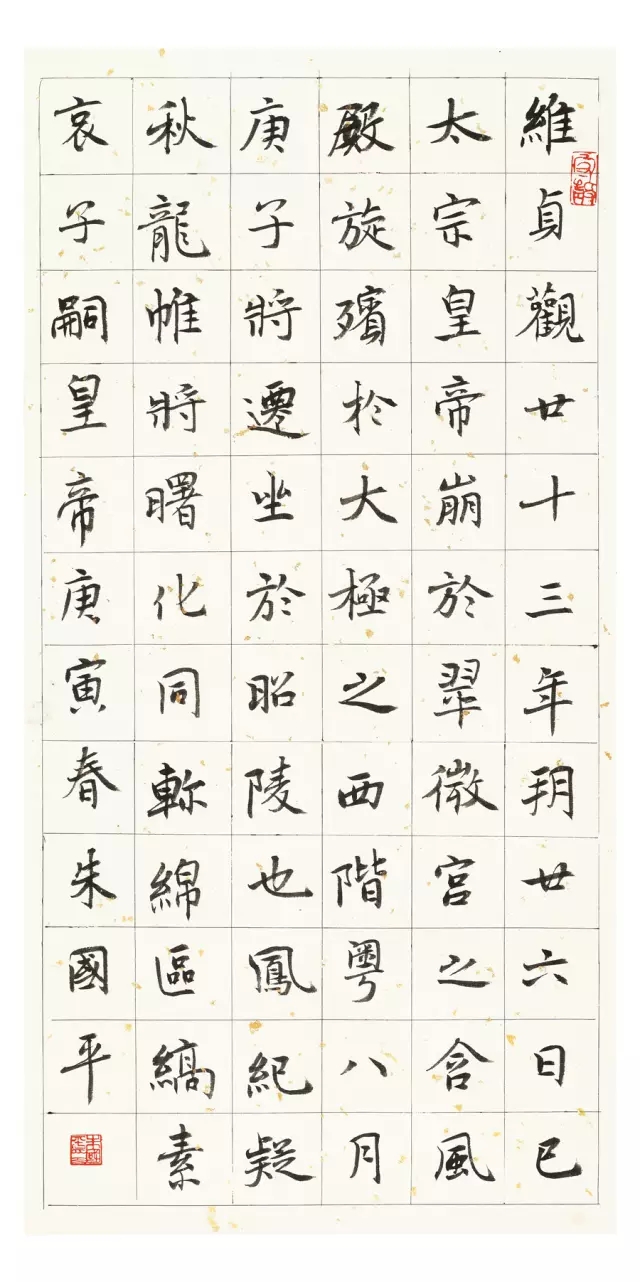 維貞觀廿十三年玥廿六日巳
太宗皇帝崩於翠微宮之含風
殿旋殯於大極之西階粵八月
庚子將遷坐於昭陵也鳳紀疑
秋龍帷將曙化同軫綿區縞素
哀子嗣皇帝庚寅春朱國平